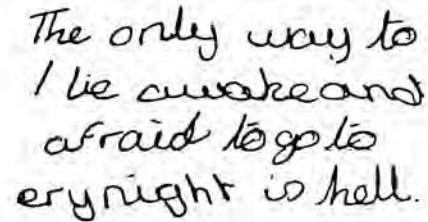 The only way to
I lie awake and
afraid to go to
ery night is hell.